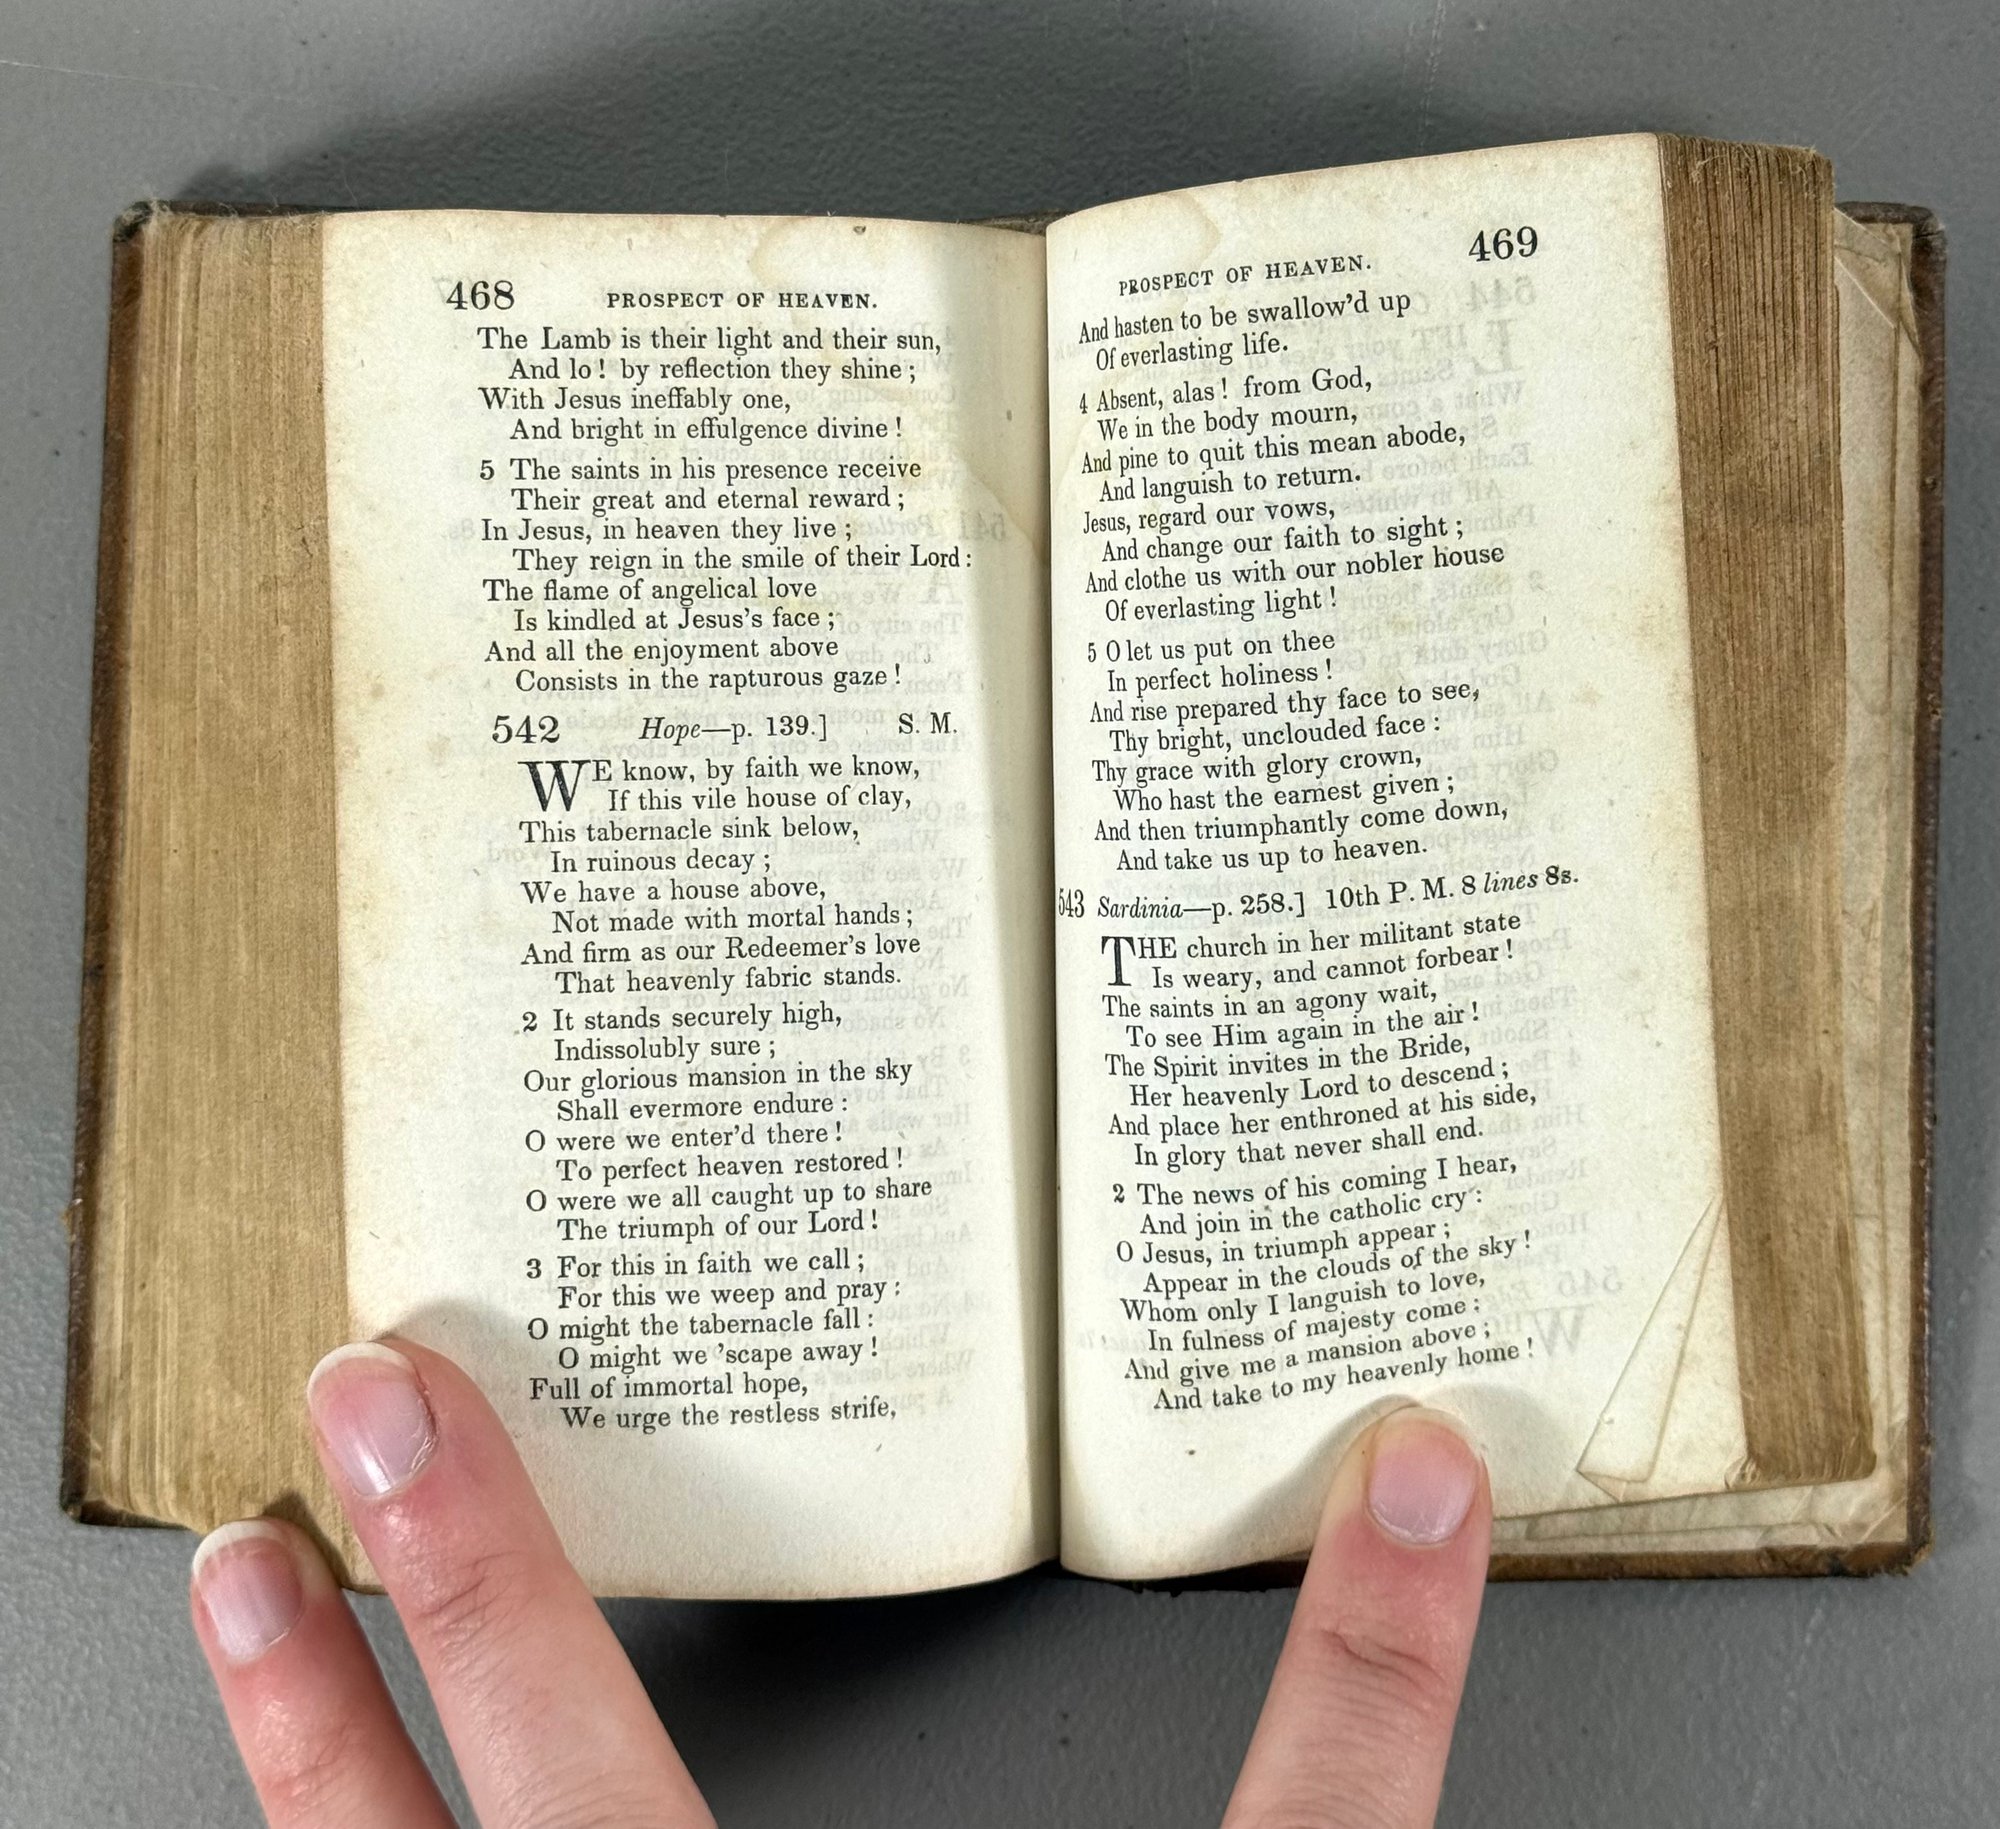 468 PROSPECT OF HEAVEN.
The Lamb is their light and their sun,
And lo! by reflection they shine;
With Jesus ineffably one,
And bright in effulgence divine!
5 The saints in his presence receive
Their great and eternal reward;
In Jesus, in heaven they live;
They reign in the smile of their Lord:
The flame of angelical love
Is kindled at Jesus's face;
And all the enjoyment above
Consists in the rapturous gaze!
542 Hope—p. 139.] S. M.
WE know, by faith we know,
If this vile house of clay,
This tabernacle sink below,
In ruinous decay;
We have a house above,
Not made with mortal hands;
And firm as our Redeemer's love
That heavenly fabric stands.
2 It stands securely high,
Indissolubly sure;
Our glorious mansion in the sky
Shall evermore endure:
O were we enter'd there!
To perfect heaven restored!
O were we all caught up to share
The triumph of our Lord!
3 For this in faith we call;
For this we weep and pray:
O might the tabernacle fall:
O might we 'scape away!
Full of immortal hope,
We urge the restless strife,
PROSPECT OF HEAVEN. 469
And hasten to be swallow'd up
Of everlasting life.
4 Absent, alas! from God,
We in the body mourn,
And pine to quit this mean abode,
And languish to return.
Jesus, regard our vows,
And change our faith to sight;
And clothe us with our nobler house
Of everlasting light!
5 O let us put on thee
In perfect holiness!
And rise prepared thy face to see,
Thy bright, unclouded face:
Thy grace with glory crown,
Who hast the earnest given;
And then triumphantly come down,
And take us up to heaven.
543 Sardinia—p. 258.] 10th P. M. 8 lines 8s.
THE church in her militant state
Is weary, and cannot forbear!
The saints in an agony wait,
To see Him again in the air!
The Spirit invites in the Bride,
Her heavenly Lord to descend;
And place her enthroned at his side,
In glory that never shall end.
2 The news of his coming I hear,
And join in the catholic cry:
O Jesus, in triumph appear;
Appear in the clouds of the sky!
Whom only I languish to love,
In fulness of majesty come:
And give me a mansion above;
And take to my heavenly home!